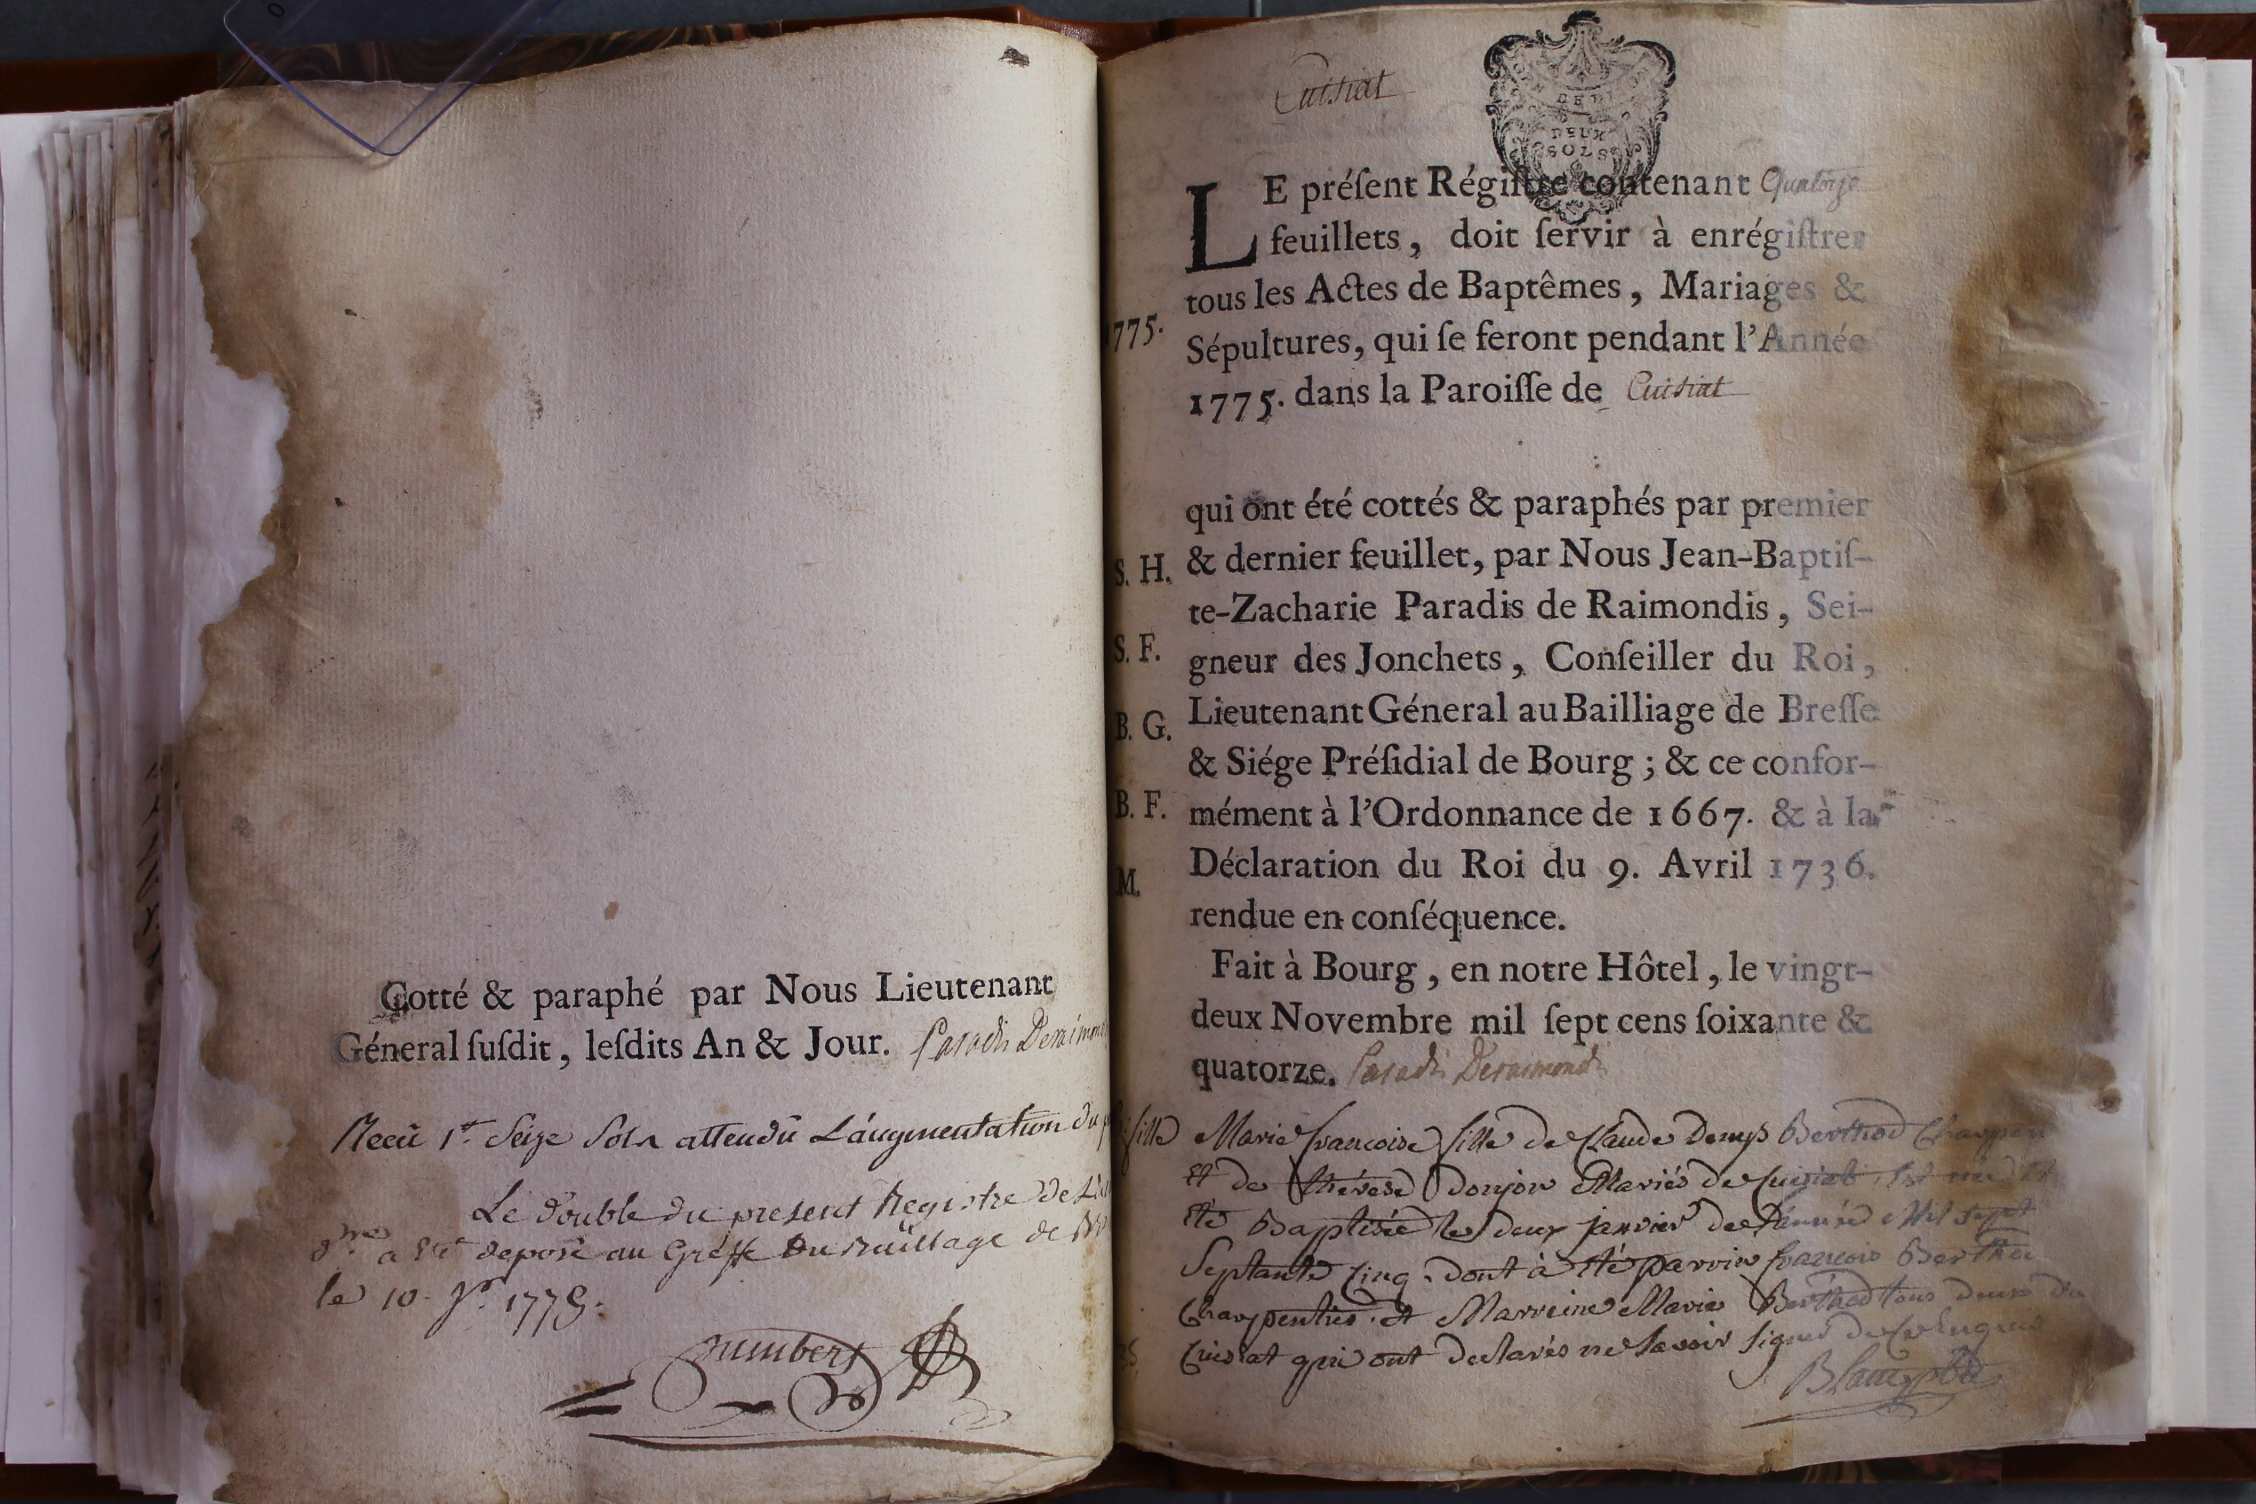 Cotté & paraphé par Nous Lieutenant
Géneral ſuſdit, leſdits An & Jour. Paradis Deraimon
Recu 1tt Seize Sols attendû L'augmentation du
Le double du present Registre de L'
a Eté deposé au Greffe Du Bailliage de
le 10 1775.
Cuisiat
DEUX
SOLS
LE préſent Régiſtre contenant Quatorze
feuillets, doit ſervir à enrégiſtrer
tous les Actes de Baptêmes, Mariages &
775.
Sépultures, qui ſe feront pendant l'Année
1775. dans la Paroiſſe de Cuisiat
qui ont été cottés & paraphés par premier
S. H.
& dernier feuillet, par Nous Jean-Baptiſ-
te-Zacharie Paradis de Raimondis, Sei-
S. F.
gneur des Jonchets, Conſeiller du Roi,
B. G.
Lieutenant Géneral au Bailliage de Breſſe
& Siége Préſidial de Bourg; & ce confor-
B. F.
mément à l'Ordonnance de 1667. & à la
M.
Déclaration du Roi du 9. Avril 1736.
rendue en conſéquence.
Fait à Bourg, en notre Hôtel, le vingt-
deux Novembre mil ſept cens ſoixante &
quatorze. Paradis Deraimondi
fille Marie francoise fille de Claude Denys Berthod Charpen
Et de thérèse donjon Mariés de Cuisiat, Est née Et
Eté Baptisée le deux janvier de L'année Mil Sept
Septante Cinq. dont à été parrin francois Bertho
Charpentier. et Marreine Marie Berthod tous deux du
Cuisiat qui ont declarés ne savoir signer de ce Enquis